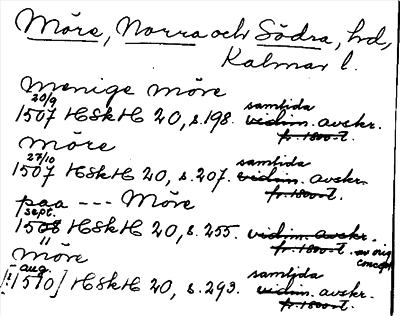 Möre, Norra och Södra, hd,
Kalmar l.
Menige möre
20/9 samtida
1507 HSkH 20, s.198. vidim. avskr.
fr. 1800-t.
möre
27/10 samtida
1507 HSkH 20, s.207. vidim. avskr.
fr. 1800-t.
paa --- Möre
sept.
1508 HSkH 20, s.255. vidim. avskr.
11 fr. 1800-t. av orig.
concept
möre
aug. samtida
[1510] HSkH 20, s.293. vidim. avskr.
fr. 1800-t.